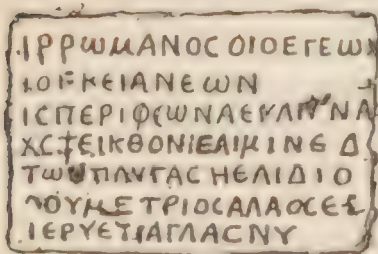 ΙΡΡΩΜΑΝΟϹ ΟΙΟΕΓΕΩΝ
ΙΟΓΚΕΙΑΝΕΩΝ
ΙϹΠΕΡΙΦΕΩΝΑΕΥΛΠΥΝΑ
ΧϹΤΕΙΚΘΟΝΙΕΑΙΜΙΝΕ Δ
ΤΩΥΠΛΥΓΑϹ ΗΕΛΙΔΙΟ
ΛΟΥΜΕΤΡΙΟϹΑΛΑΟϹΕΣ
ΙΕΡΥΕΤΙΑΓΛΑϹΝΥ